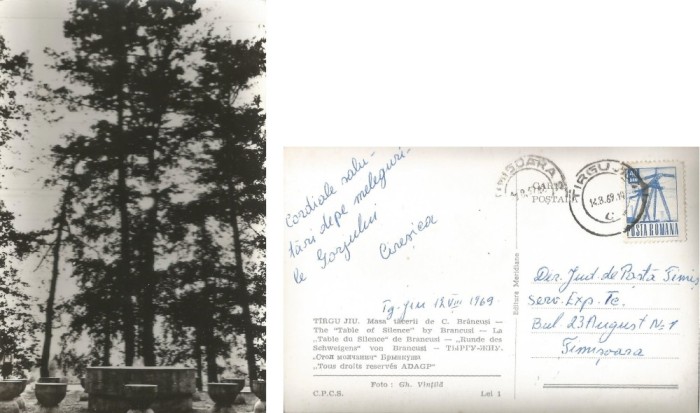 Cordiale salu-
tări depe meleguri-
le Gorjului
Tg. Jiu 12 VIII 1969.
TÎRGU JIU. Masa tăcerii de C. Brâncuși —
The "Table of Silence" by Brancusi — La
„Table du Silence" de Brancusi — „Runde des
Schweigens" von Brancusi — ТЫРГУ-ЖИУ.
„Стол молчания" Брынкуши
„Tous droits reservés ADAGP"
Foto : Gh. Vințilă
C.P.C.S.
Lei 1
Editura Meridiane
TIMIȘOARA
POȘTALĂ
TIRGU JIU
14.8.69.19
C
POSTA ROMANA
Dir. Jud. de Poștă Timiș
Serv. Exp. Tc.
Bul. 23 August Nr. 1
Timișoara